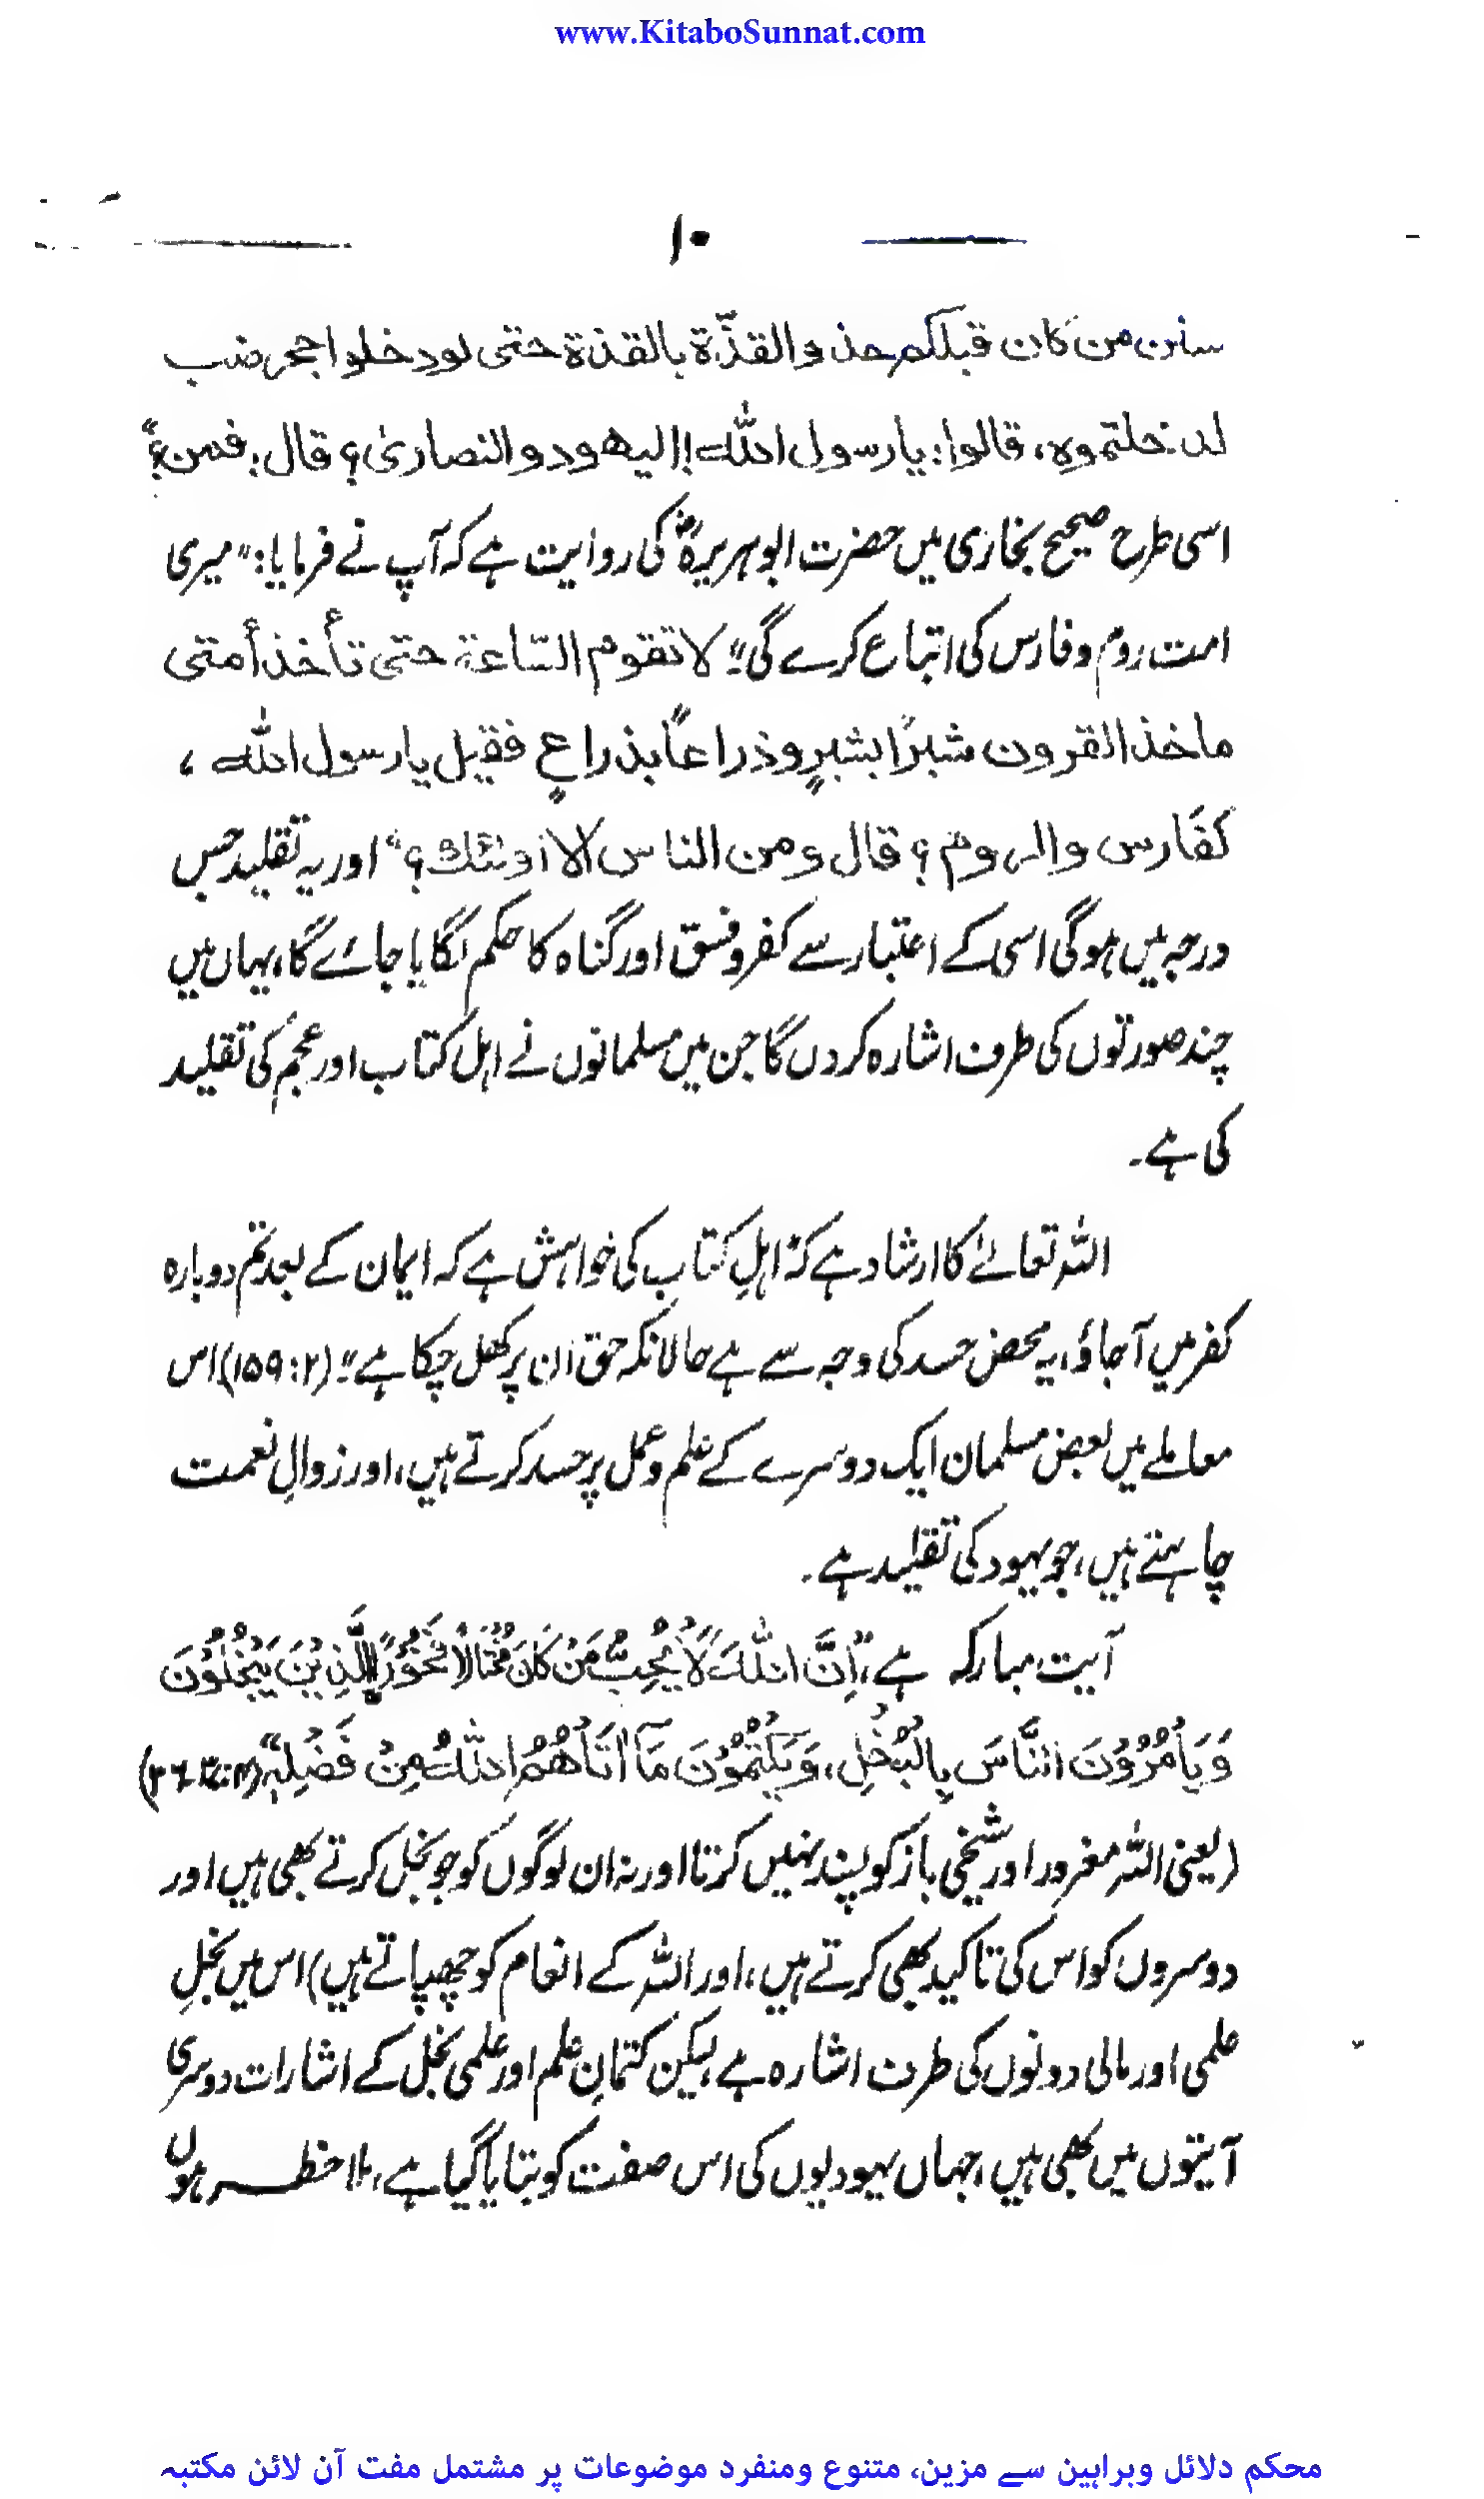 www.KitaboSunnat.com
۱۰
سنن من كان قبلكم حذو القذّة بالقذة حتى لو دخلوا جحر ضب
لدخلتموه، قالوا: يا رسول الله! اليهود والنصارىٰ؟ قال: فمن؟"
اسی طرح صحیح بخاری میں حضرت ابوہریرہؓ کی روایت ہے کہ آپ نے فرمایا: "میری
امت روم و فارس کی اتباع کرے گی"۔ لا تقوم السّاعة حتى تأخذ أمتى
ماخذ القرون شبرًا بشبرٍ وذراعاً بذراعٍ فقيل يا رسول الله،
كفارس والروم؟ قال ومن الناس الا اولئك؟" اور یہ تقلید جس
درجہ میں ہوگی اسی کے اعتبار سے کفر و فسق اور گناہ کا حکم لگایا جائے گا، یہاں میں
چند صورتوں کی طرف اشارہ کردں گا جن میں مسلمانوں نے اہل کتاب اور عجم کی تقلید
کی ہے۔
اللہ تعالےٰ کا ارشاد ہے کہ "اہلِ کتاب کی خواہش ہے کہ ایمان کے بعد تم دوبارہ
کفر میں آجاؤ، یہ محض حسد کی وجہ سے ہے حالانکہ حق ان پر کھل چکا ہے"۔ (۲:۱۵۹) اس
معاملے میں بعض مسلمان ایک دوسرے کے علم و عمل پر حسد کرتے ہیں، اور زوالِ نعمت
چاہتے ہیں، جو یہود کی تقلید ہے۔
آیت مبارکہ ہے، "اِنَّ اللهَ لَا يُحِبُّ مَنْ كَانَ مُخْتَالًا فَخُوْرًا الَّذِيْنَ يَبْخَلُوْنَ
وَيَأْمُرُوْنَ النَّاسَ بِالْبُخْلِ، وَيَكْتُمُوْنَ مَآ اٰتَاهُمُ اللهُ مِنْ فَضْلِهٖ"
(یعنی اللہ مغرور اور شیخی باز کو پسند نہیں کرتا اور نہ ان لوگوں کو جو بخل کرتے بھی ہیں اور
دوسروں کو اس کی تاکید بھی کرتے ہیں، اور اللہ کے انعام کو چھپاتے ہیں) اس میں بخلِ
علمی اور مالی دونوں کی طرف اشارہ ہے، لیکن کتمانِ علم اور علمی بخل کے اشارات دوسری
آیتوں میں بھی ہیں، جہاں یہودیوں کی اس صفت کو بتایا گیا ہے، ملاحظہ ہوں
محکم دلائل وبراہین سے مزین، متنوع ومنفرد موضوعات پر مشتمل مفت آن لائن مکتبہ